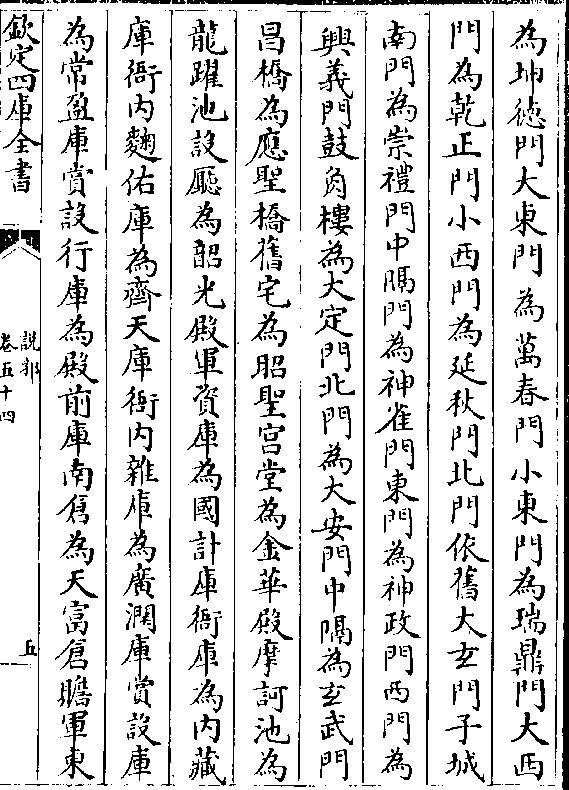 為坤德門大東門為萬春門小東門為瑞鼎門大西
門為乾正門小西門為延秋門北門依舊大玄門子城
南門為崇禮門中隔門為神雀門東門為神政門西門為
興義門鼓角樓為大定門北門為大安門中隔為玄武門
昌橋為應聖橋舊宅為昭聖宫堂為金華殿摩訶池為
龍躍池設廳為韶光殿軍資庫為國計庫衙庫為内藏
庫衙内麴佑庫為齊天庫衙内雜庫為廣潤庫賞設庫
為常盈庫賞設行庫為殿前庫南倉為天富倉贍軍東
欽定四庫全書
說郛
卷五十四
五